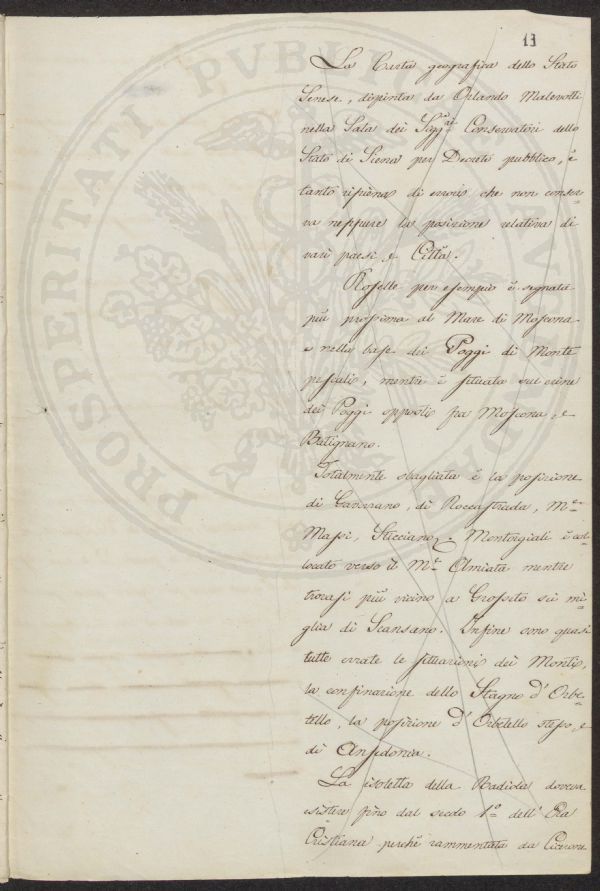 13
La Carta geografica dello Stato
Senese, dipinta da Orlando Malevolti
nella Sala dei Sigg.ri Conservatori dello
Stato di Siena per Decreto pubblico, è
tanto ripiena di errori che non conser-
va neppure la posizione relativa di
varj paesi e Città.
Roselle per esempio è segnata
più prossima al Mare di Moscona
e nella base dei Poggi di Monte
pescali, mentre è situata sul crine
dei Poggi opposti fra Moscona, e
Batignano.
Totalmente sbagliata è la posizione
di Gavorrano, di Roccastrada, M.te
Massi, Sticciano. Montorgiali è col-
locato verso il M.te Amiata mentre
trovasi più vicino a Grosseto sei mi-
glia di Scansano. Infine sono quasi
tutte errate le situazioni dei Monti,
la confinazione dello Stagno d'Orbe-
tello, la posizione d'Orbetello stesso, e
di Ansedonia.
La isoletta della Badiola doveva
esistere fino dal secolo 1º dell'Era
Cristiana perchè rammentata da Cicerone
PROSPERITATI PVBLICAE